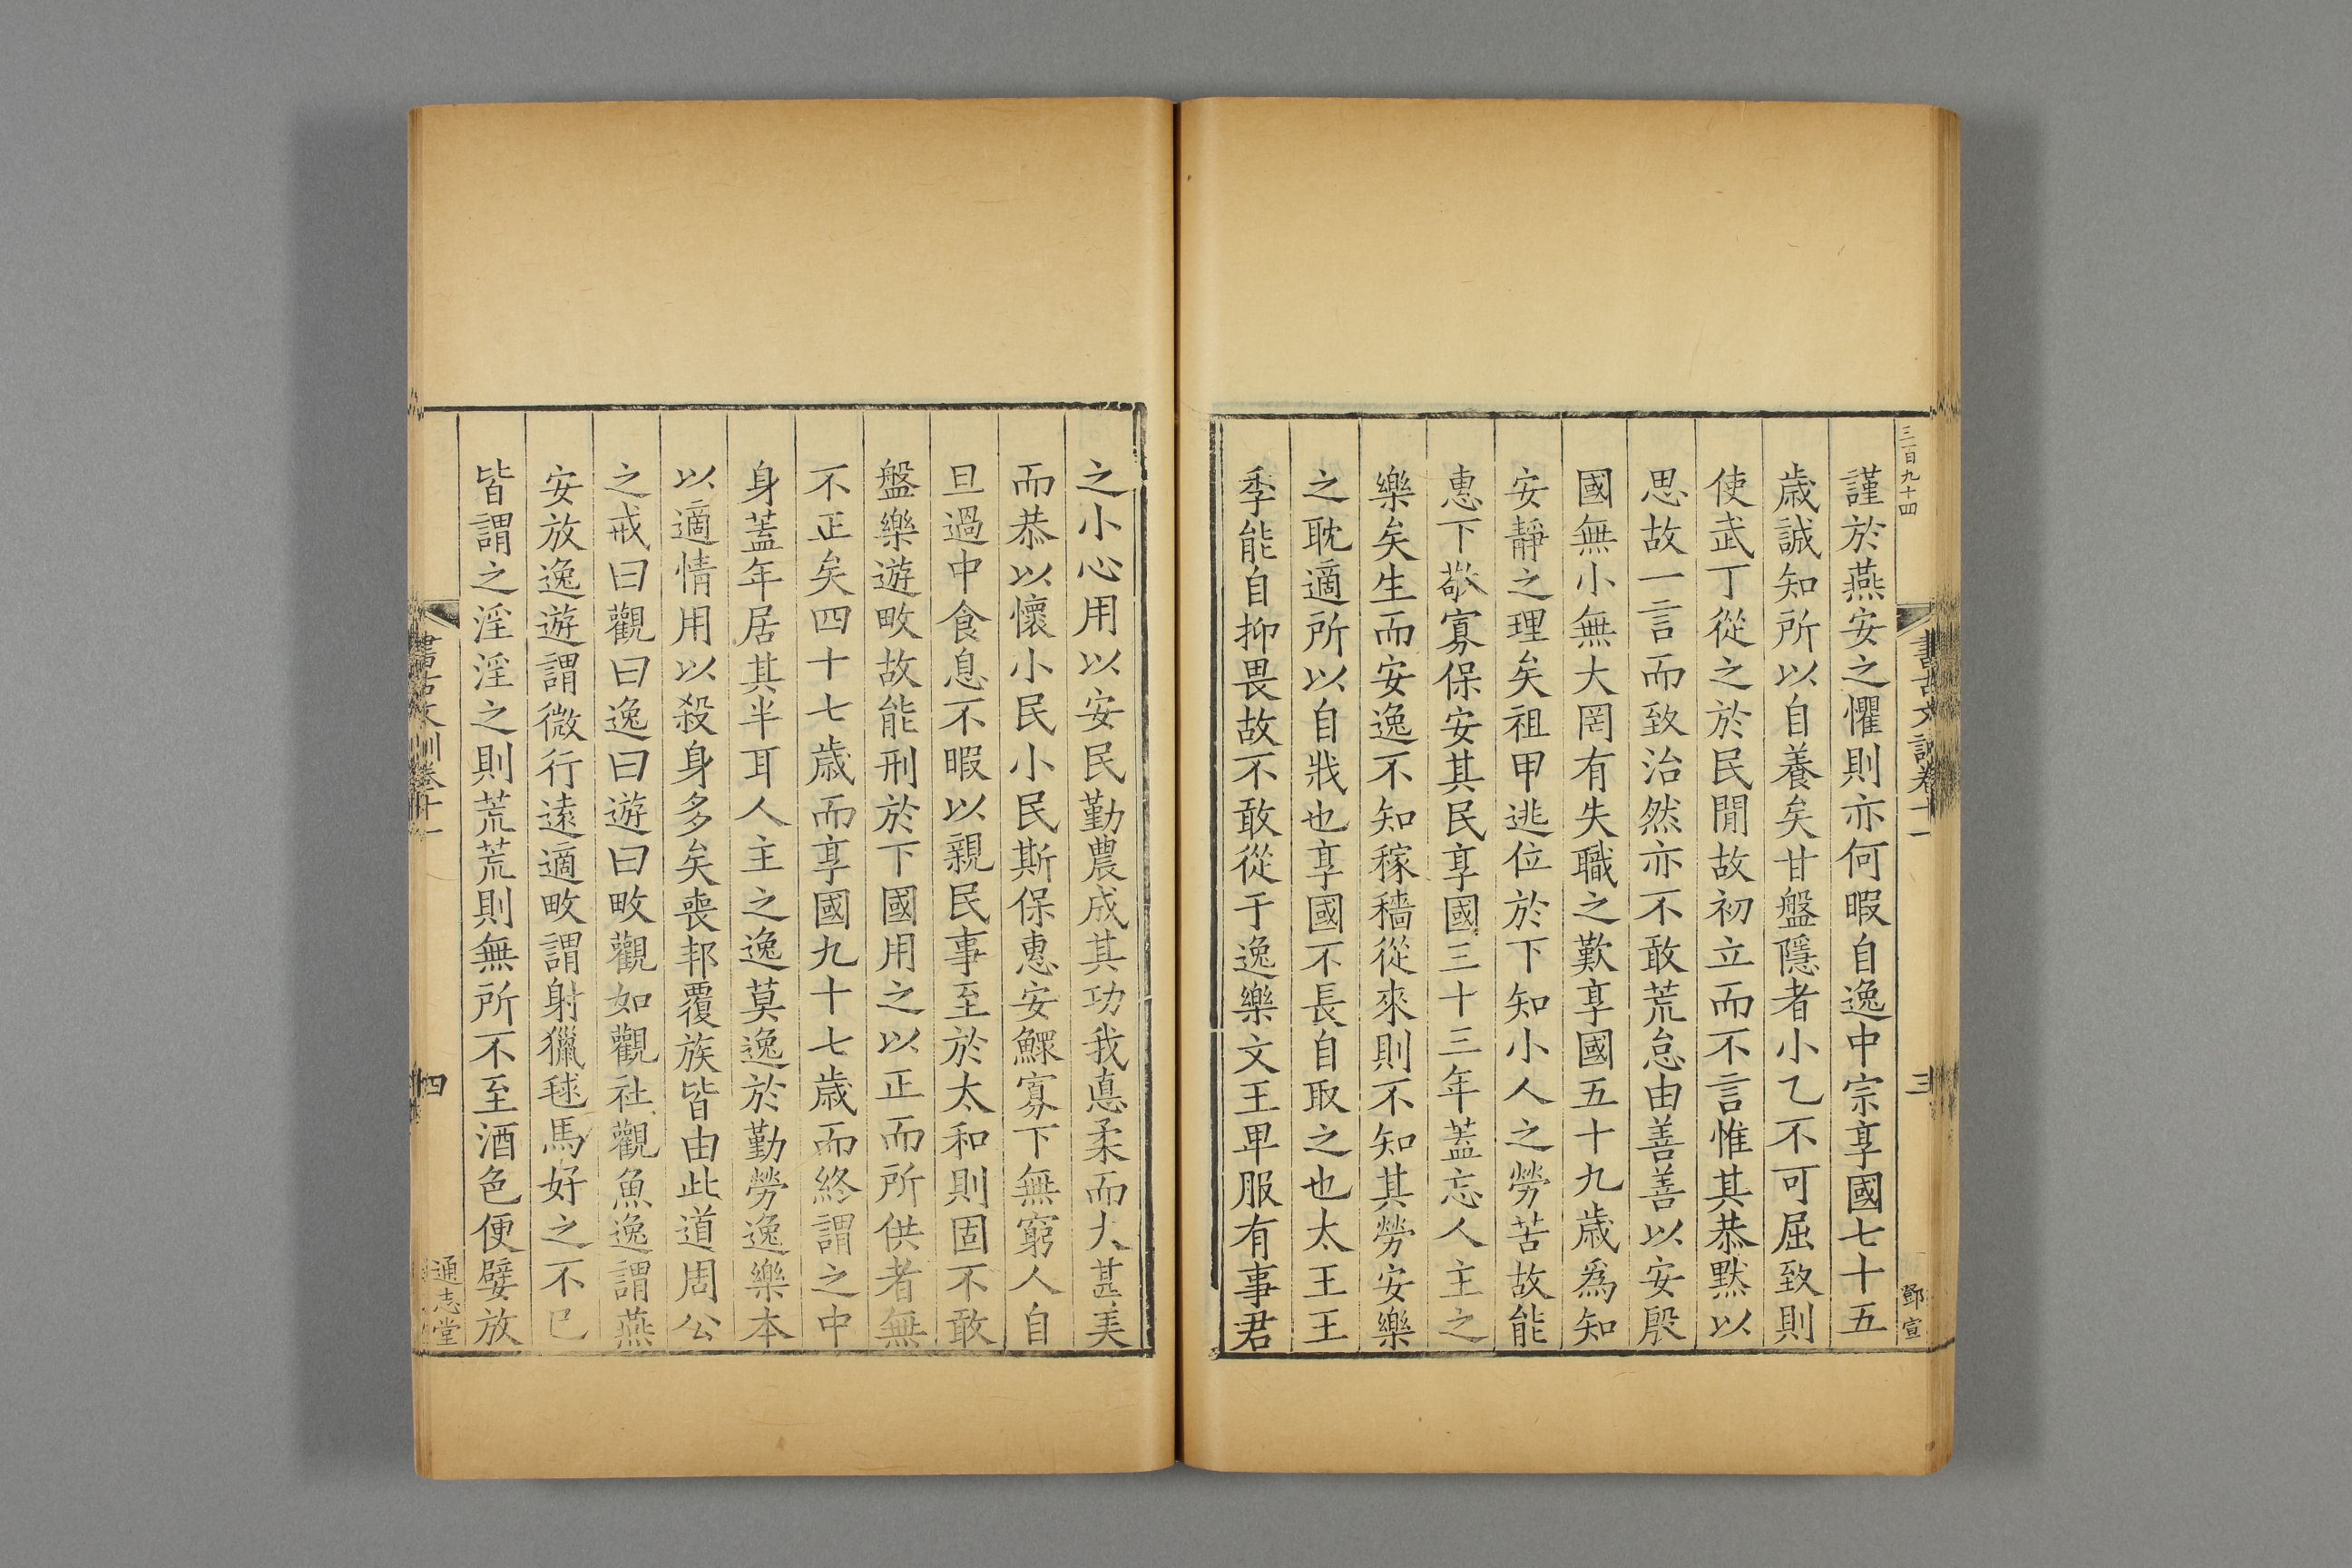 三百九十四
謹於燕安之懼則亦何暇自逸中宗享國七十五
歲誠知所以自養矣甘盤隱者小乙不可屈致則
使武丁從之於民閒故初立而不言惟其恭默以
思故一言而致治然亦不敢荒怠由善善以安殷
國無小無大罔有失職之歎享國五十九歲爲知
安靜之理矣祖甲逃位於下知小人之勞苦故能
惠下敬寡保安其民享國三十三年蓋忘人主之
樂矣生而安逸不知稼穡從來則不知其勞安樂
之耽適所以自戕也享國不長自取之也太王王
季能自抑畏故不敢從于逸樂文王卑服有事君
書古文訓卷十一
三
鄧宣
之小心用以安民勤農成其功我悳柔而大甚美
而恭以懷小民小民斯保惠安鰥寡下無窮人自
旦過中食息不暇以親民事至於太和則固不敢
盤樂遊畋故能刑於下國用之以正而所供者無
不正矣四十七歲而享國九十七歲而終謂之中
身蓋年居其半耳人主之逸莫逸於勤勞逸樂本
以適情用以殺身多矣喪邦覆族皆由此道周公
之戒曰觀曰逸曰遊曰畋觀如觀社觀魚逸謂燕
安放逸遊謂微行遠適畋謂射獵毬馬好之不已
皆謂之淫淫之則荒荒則無所不至酒色便嬖放
書古文訓卷十一
四
通志堂